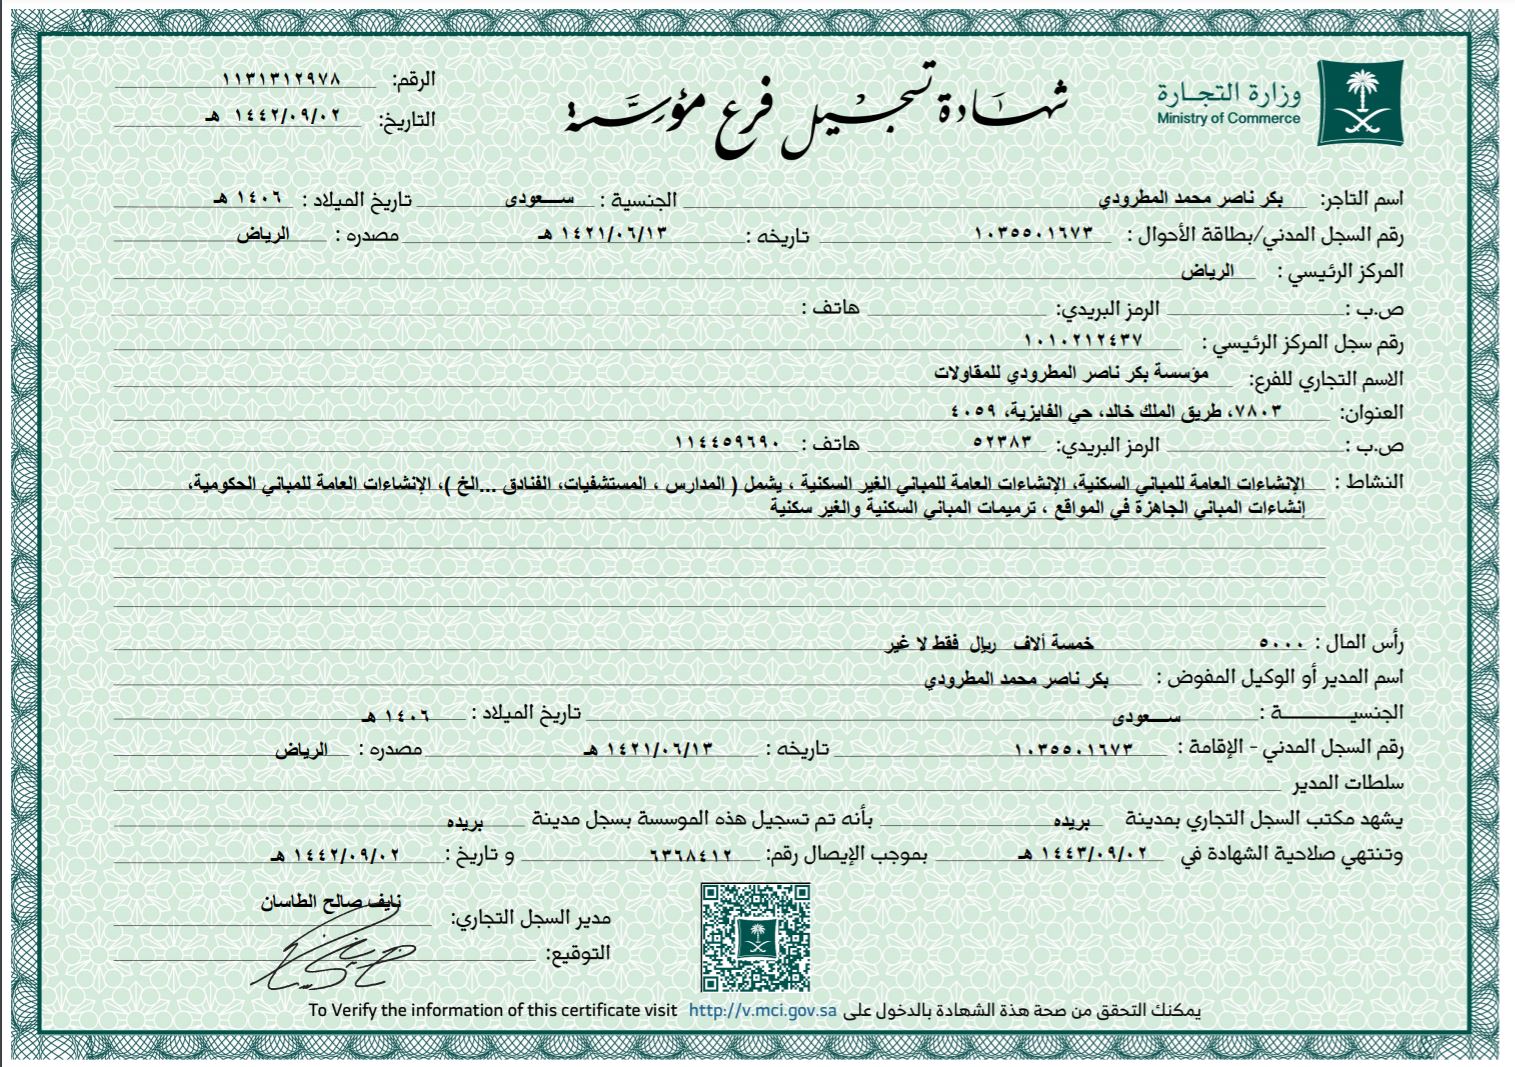 وزارة التجـارة
Ministry of Commerce
شهادة تسجيل فرع مؤسسة
الرقم: ١١٣١٣١٢٩٧٨
التاريخ: ١٤٤٢/٠٩/٠٢ هـ
اسم التاجر: بكر ناصر محمد المطرودي الجنسية : ســعودى تاريخ الميلاد : ١٤٠٦ هـ
رقم السجل المدني/بطاقة الأحوال : ١٠٣٥٥٠١٦٧٣ تاريخه : ١٤٢١/٠٦/١٣ هـ مصدره : الرياض
المركز الرئيسي : الرياض
ص.ب : الرمز البريدي: هاتف :
رقم سجل المركز الرئيسي : ١٠١٠٢١٢٤٣٧
الاسم التجاري للفرع: مؤسسة بكر ناصر المطرودي للمقاولات
العنوان: ٧٨٠٣، طريق الملك خالد، حي الفايزية، ٤٠٥٩
ص.ب : الرمز البريدي: ٥٢٣٨٣ هاتف : ١١٤٤٥٩٦٩٠
النشاط : الإنشاءات العامة للمباني السكنية، الإنشاءات العامة للمباني الغير السكنية ، يشمل ( المدارس ، المستشفيات، الفنادق ...الخ )، الإنشاءات العامة للمباني الحكومية،
إنشاءات المباني الجاهزة في المواقع ، ترميمات المباني السكنية والغير سكنية
رأس المال : ٥٠٠٠ خمسة ألاف ريال فقط لا غير
اسم المدير أو الوكيل المفوض : بكر ناصر محمد المطرودي
الجنسيـــــــة : ســعودى تاريخ الميلاد : ١٤٠٦ هـ
رقم السجل المدني - الإقامة : ١٠٣٥٥٠١٦٧٣ تاريخه : ١٤٢١/٠٦/١٣ هـ مصدره : الرياض
سلطات المدير
يشهد مكتب السجل التجاري بمدينة بريده بأنه تم تسجيل هذه الموسسة بسجل مدينة بريده
وتنتهي صلاحية الشهادة في ١٤٤٣/٠٩/٠٢ هـ بموجب الإيصال رقم: ٦٣٦٨٤١٢ و تاريخ : ١٤٤٢/٠٩/٠٢ هـ
مدير السجل التجاري: نايف صالح الطاسان
التوقيع:
يمكنك التحقق من صحة هذة الشهادة بالدخول على http://v.mci.gov.sa To Verify the information of this certificate visit